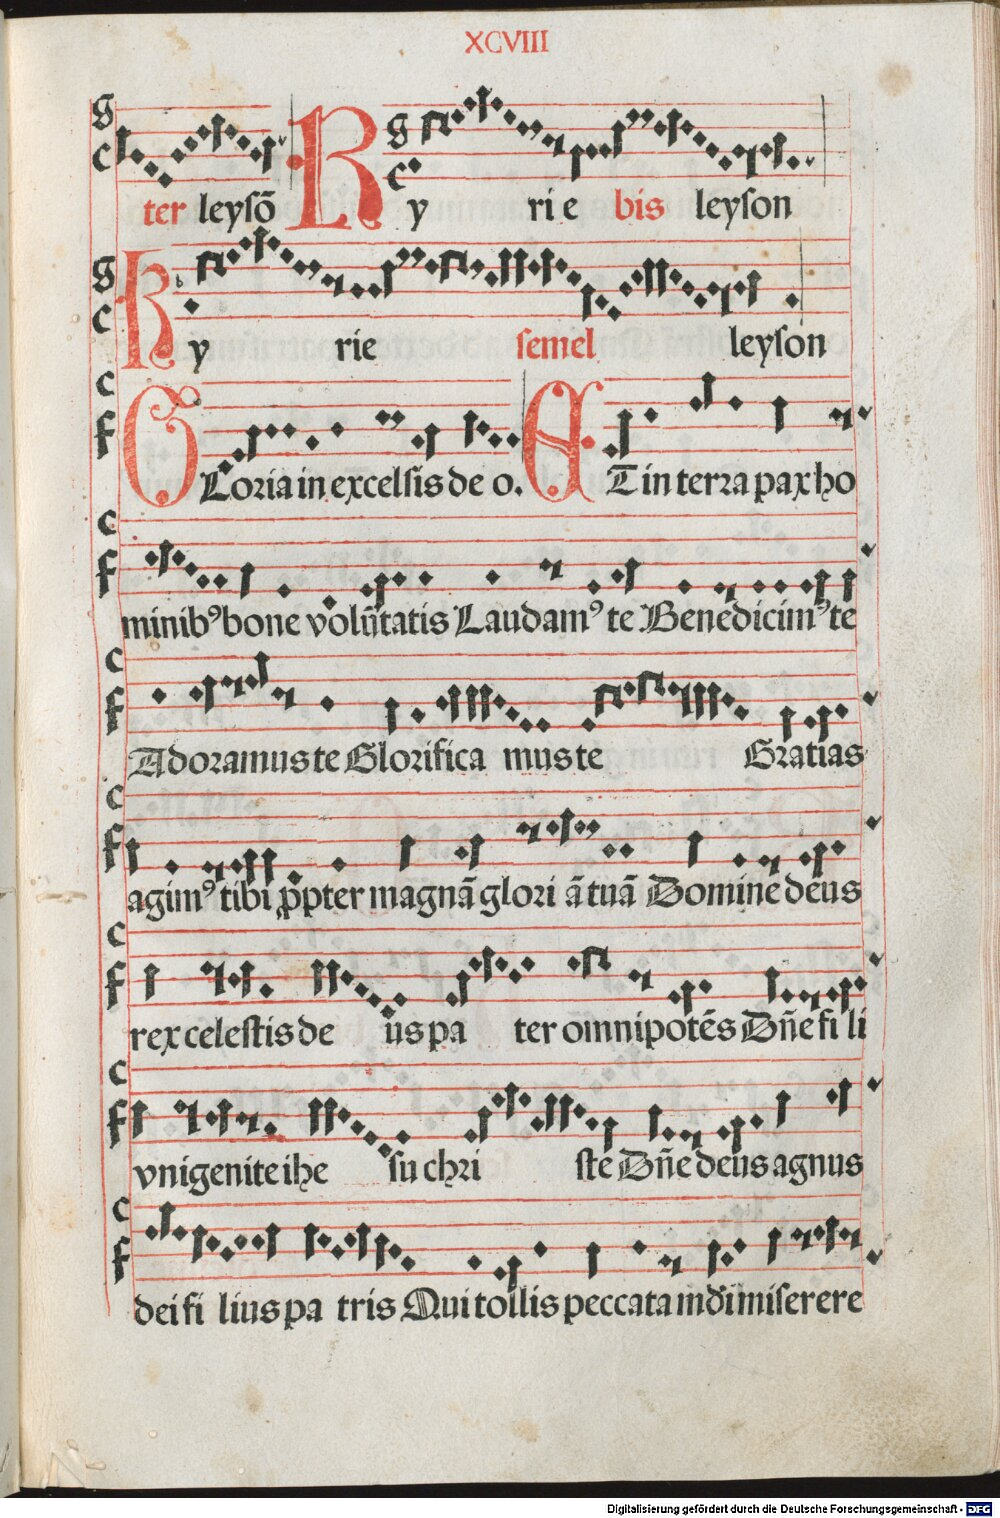 XCVIII
g c
ter leysō Ky rie bis leyson
g c
Ky rie semel leyson
c f
GLoria in excelsis de o. AT in terra pax ho
c f
minibꝰ bone volūtatis Laudamꝰ te Benedicimꝰ te
c f
Adoramus te Glorifica mus te Gratias
c f
agimꝰ tibi ꝓpter magnā glori ā tuā Domine deus
c f
rex celestis de us pa ter omnipotēs Dñe fi li
c f
vnigenite ihe su chri ste Dñe deus agnus
c f
dei fi lius pa tris Qui tollis peccata mūdi miserere
Digitalisierung gefördert durch die Deutsche Forschungsgemeinschaft - DFG